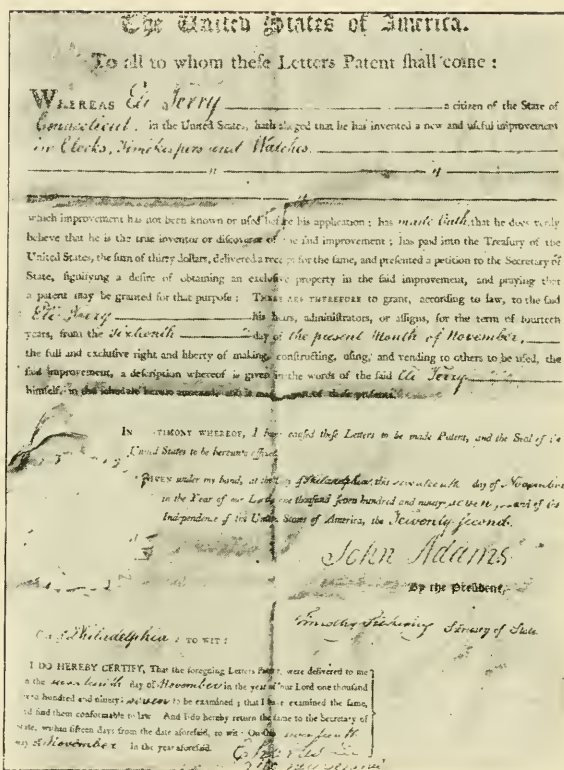 The United States of America.
To all to whom theſe Letters Patent ſhall come :
WHEREAS Eli Terry a citizen of the State of
Connecticut, in the United States, hath alleged that he has invented a new and uſeful improvement
in Clocks, Timekeepers and Watches.
" "
which improvement has not been known or uſed before his application ; has made Oath, that he does verily
believe that he is the true inventor or diſcoverer of the ſaid improvement ; has paid into the Treaſury of the
United States, the ſum of thirty dollars, delivered a receipt for the ſame, and preſented a petition to the Secretary of
State, ſignifying a deſire of obtaining an excluſive property in the ſaid improvement, and praying that
a patent may be granted for that purpoſe : THESE ARE THEREFORE to grant, according to law, to the ſaid
Eli Terry his heirs, adminiſtrators, or aſſigns, for the term of fourteen
years, from the Sixteenth day of the present Month of November,
the full and excluſive right and liberty of making, conſtructing, uſing, and vending to others to be uſed, the
ſaid improvement, a deſcription whereof is given in the words of the ſaid Eli Terry
himſelf, in the ſchedule hereto annexed, and is made part of theſe preſents.
IN TESTIMONY WHEREOF, I have cauſed theſe Letters to be made Patent, and the Seal of the
United States to be hereunto affixed.
GIVEN under my hand, at the City of Philadelphia, this seventeenth day of November
in the Year of our Lord, one thouſand ſeven hundred and ninety seven, and of the
Independence of the United States of America, the Twenty second.
John Adams
By the Preſident,
Timothy Pickering Secretary of State
City of Philadelphia : TO WIT :
I DO HEREBY CERTIFY, That the foregoing Letters Patent, were delivered to me
on the seventeenth day of November in the year of our Lord one thouſand
seven hundred and ninety seven to be examined ; that I have examined the ſame,
and find them conformable to law. And I do hereby return the ſame to the Secretary of
State, within fifteen days from the date aforeſaid, to wit : On this seventeenth
day of November In the year aforeſaid.